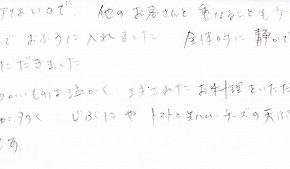 ないので、他のお客さんと重なることも
で おふろに入れました 全体的に静かで
ただきました
かいものは温かく お料理をいただ
が多く じぶにや トマトと生ハム・チーズの天ぷ
です。